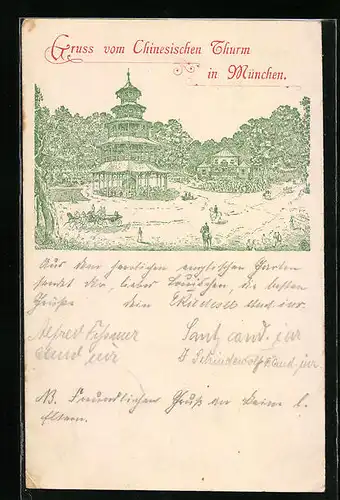 Gruss vom Chinesischen Thurm
in München.
Aus dem herrlichen englischen Garten
sendet dir, lieber die besten
Grüße dein stud. iur.
Alfred
stud iur
cand. iur
stud. iur.
NB. Freundlichen Gruß an Deine l.
Eltern.